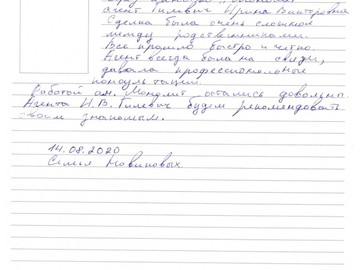 агент Гилевич Ирина Викторовна
Сделка была очень сложной
между родственниками.
Все прошло быстро и четко.
Агент всегда была на связи,
давала профессиональные
консультации.
Работой ан. Монолит остались довольны.
Агента И.В. Гилевич будем рекомендовать
своим знакомым.
14.08.2020
Семья Новиковых